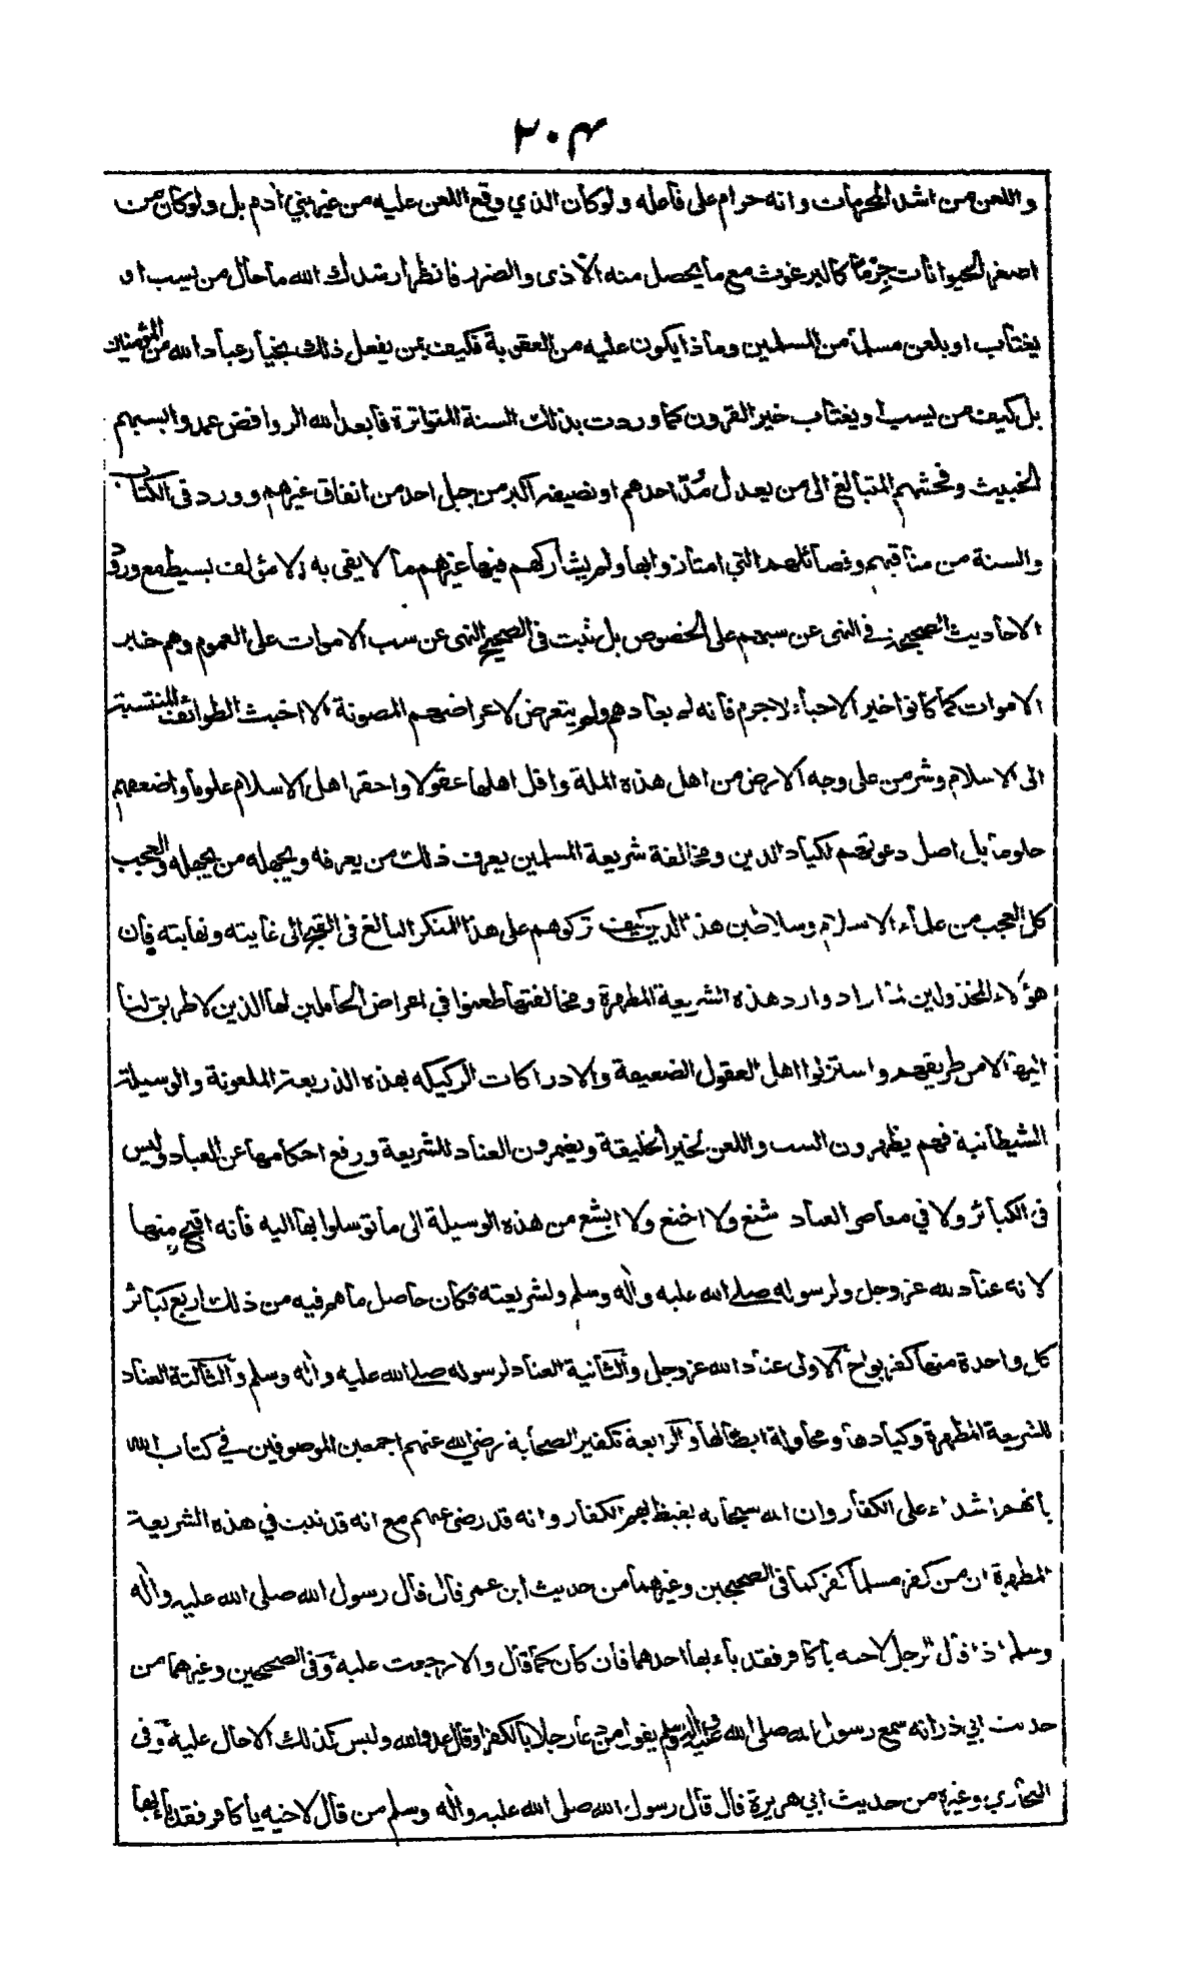 ٢٠٤
واللعن من اشد المحرمات وانه حرام على فاعله ولو كان الذي وقع اللعن عليه من غير بني أدم بل ولو كان من
اصغر الحيوانات جِرْماً كالبرغوث مع ما يحصل منه الاذى والضرر فانظر ارشدك الله ما حال من يسب او
يغتاب او يلعن مسلما من المسلمين وماذا يكون عليه من العقوبة فكيف بمن يفعل ذلك بخيار عباد الله من المؤمنين
بل كيف من يسب او يغتاب خير القرون كما وردت بذلك السنة المتواترة فابعد الله الروافض عمدوا بسبهم
الخبيث وفحشهم المتبالغ الى من يعدل مُدّ احدهم او نصيفه اكبر من جبل احد من انفاق غيرهم وورد في الكتاب
والسنة من مناقبهم وفضائلهم التي امتازوا بها ولم يشاركهم فيها غيرهم ما لا يفى به الا مؤلف بسيط مع ورود
الاحاديث الصحيحة في النهى عن سبهم على الخصوص بل ثبت في الصحيح النهى عن سب الاموات على العموم وهم خير
الاموات كما كانوا خير الاحياء لاجرم فانه لم يعادهم ولم يتعرض لاعراضهم المصونة الا اخبث الطوائف المنتسبة
الى الاسلام وشر من على وجه الارض من اهل هذه الملة واقل اهلها عقولا واحقر اهل الاسلام علوما واضعفهم
حلوما بل اصل دعوتهم لكياد الدين ومخالفة شريعة المسلمين يعرف ذلك من يعرفه ويجهله من يجهله والعجب
كل العجب من علماء الاسلام وسلاطين هذا الدين كيف تركوهم على هذا المنكر البالغ في القبح الى غايته ونهايته فان
هؤلاء المخذولين لما ارادوا رد هذه الشريعة المطهرة ومخالفتها طعنوا في اعراض الحاملين لها الذين لا طريق لنا
اليها الا من طريقهم واستزلوا اهل العقول الضعيفة والادراكات الركيكه بهذه الذريعة الملعونة والوسيلة
الشيطانية فهم يظهرون السب واللعن لخير الخليقة ويضمرون العناد للشريعة ورفع احكامها عن العباد وليس
في الكبائر ولا في معاصى العباد شنع ولا اخنع ولا ابشع من هذه الوسيلة الى ما توسلوا بها اليه فانه اقبح منها
لانه عناد لله عز وجل ولرسوله صلى الله عليه واٰله وسلم ولشريعته فكان حاصل ما هم فيه من ذلك اربع كبائر
كل واحدة منها كفر بواح الاولى عناد الله عز وجل والثانية العناد لرسوله صلى الله عليه واٰله وسلم والثالثة العناد
للشريعة المطهرة وكيادها ومحاولة ابطالها والرابعة تكفير الصحابة رضي الله عنهم اجمعين الموصوفين في كتاب الله
بانهم اشداء على الكفار وان الله سبحانه يغيظ بهم الكفار وانه قد رضى عنهم مع انه قد ثبت في هذه الشريعة
المطهرة ان من كفر مسلما كفر كما في الصحيحين وغيرهما من حديث ابن عمر قال قال رسول الله صلى الله عليه واٰله
وسلم اذا قال الرجل لاخيه يا كافر فقد باء بها احدهما فان كان كما قال والا رجعت عليه وفي الصحيحين وغيرهما من
حديث ابي ذر انه سمع رسول الله صلى الله عليه واٰله وسلم يقول من دعا رجلا بالكفر او قال عدو الله وليس كذلك الا حال عليه وفي
البخاري وغيره من حديث ابي هريرة قال قال رسول الله صلى الله عليه واٰله وسلم من قال لاخيه يا كافر فقد باء بها